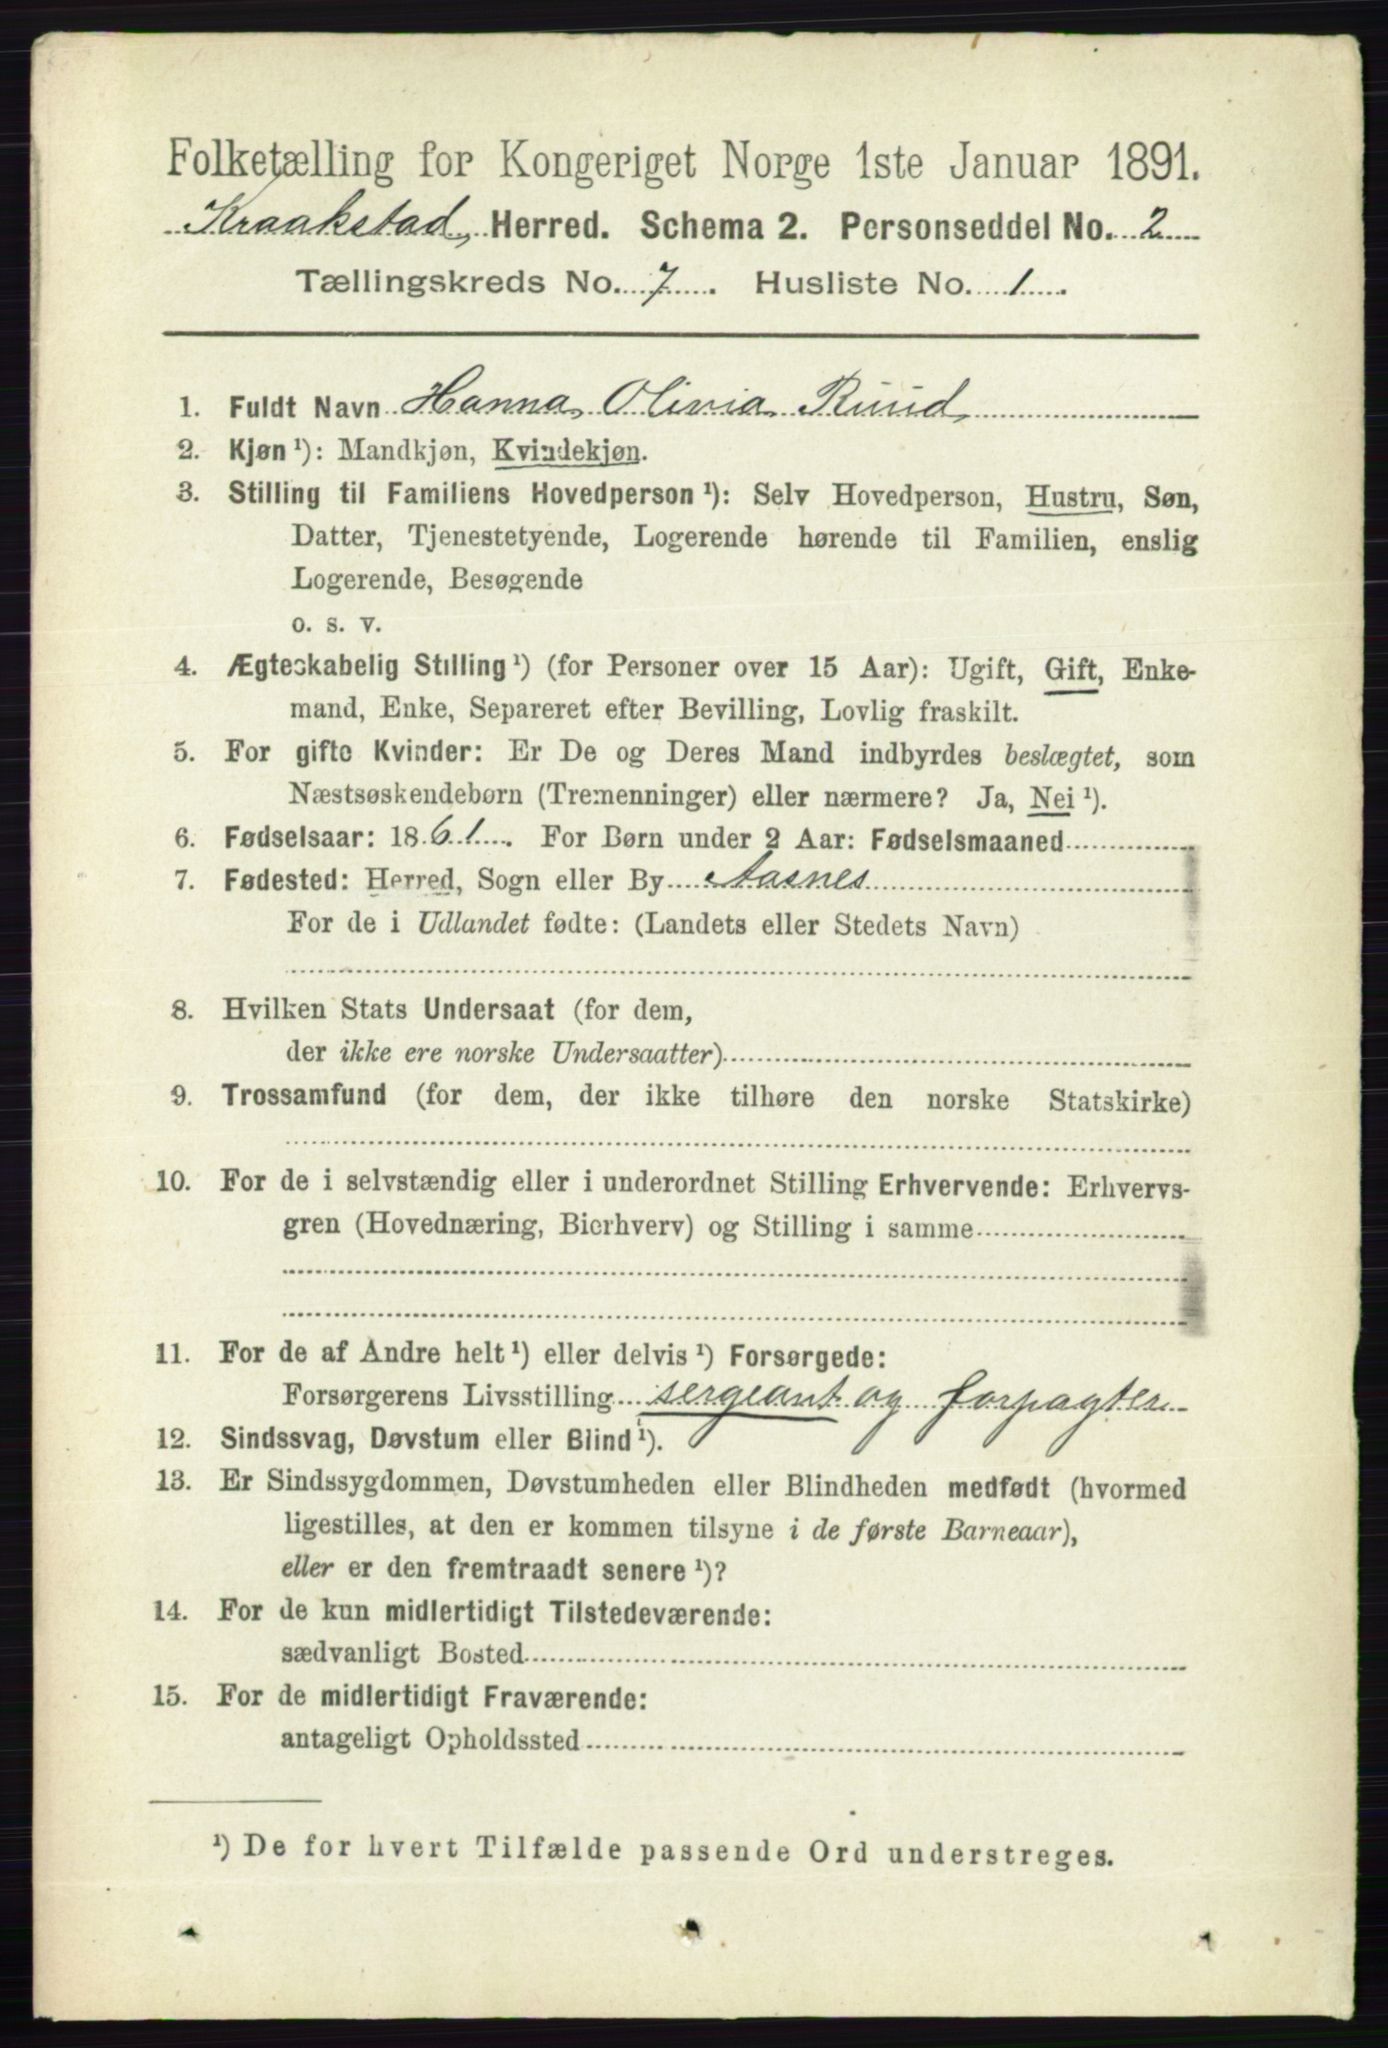 Folketælling for Kongeriget Norge 1ste Januar 1891.
Kraakstad Herred. Schema 2. Personseddel No. 2
Tællingskreds No. 7. Husliste No. 1.
1. Fuldt Navn Hanna Olivia Ruud
2. Kjøn ¹): Mandkjøn, Kvindekjøn.
3. Stilling til Familiens Hovedperson ¹): Selv Hovedperson, Hustru, Søn,
Datter, Tjenestetyende, Logerende hørende til Familien, enslig
Logerende, Besøgende
o. s. v.
4. Ægteskabelig Stilling ¹) (for Personer over 15 Aar): Ugift, Gift, Enke-
mand, Enke, Separeret efter Bevilling, Lovlig fraskilt.
5. For gifte Kvinder: Er De og Deres Mand indbyrdes beslægtet, som
Næstsøskendebørn (Tremenninger) eller nærmere? Ja, Nei ¹).
6. Fødselsaar: 1861. For Børn under 2 Aar: Fødselsmaaned
7. Fødested: Herred, Sogn eller By Aasnes
For de i Udlandet fødte: (Landets eller Stedets Navn)
8. Hvilken Stats Undersaat (for dem,
der ikke ere norske Undersaatter)
9. Trossamfund (for dem, der ikke tilhøre den norske Statskirke)
10. For de i selvstændig eller i underordnet Stilling Erhvervende: Erhvervs-
gren (Hovednæring, Bierhverv) og Stilling i samme
11. For de af Andre helt ¹) eller delvis ¹) Forsørgede:
Forsørgerens Livsstilling sergeant og forpagter
12. Sindssvag, Døvstum eller Blind ¹).
13. Er Sindssygdommen, Døvstumheden eller Blindheden medfødt (hvormed
ligestilles, at den er kommen tilsyne i de første Barneaar),
eller er den fremtraadt senere ¹)?
14. For de kun midlertidigt Tilstedeværende:
sædvanligt Bosted
15. For de midlertidigt Fraværende:
antageligt Opholdssted
¹) De for hvert Tilfælde passende Ord understreges.